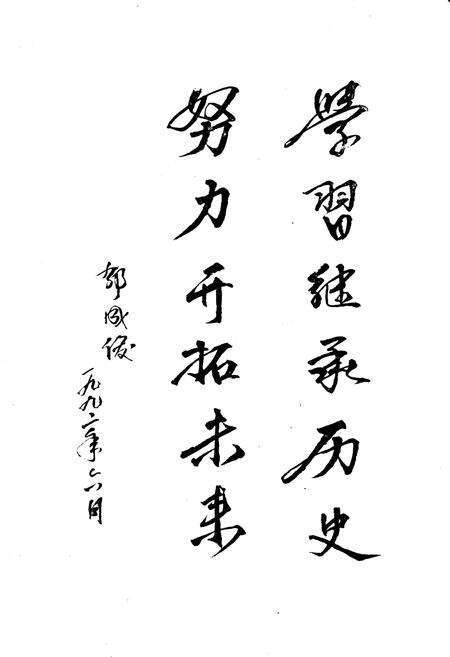 學習继承历史
努力开拓未来
郭成俊
一九九二年六月